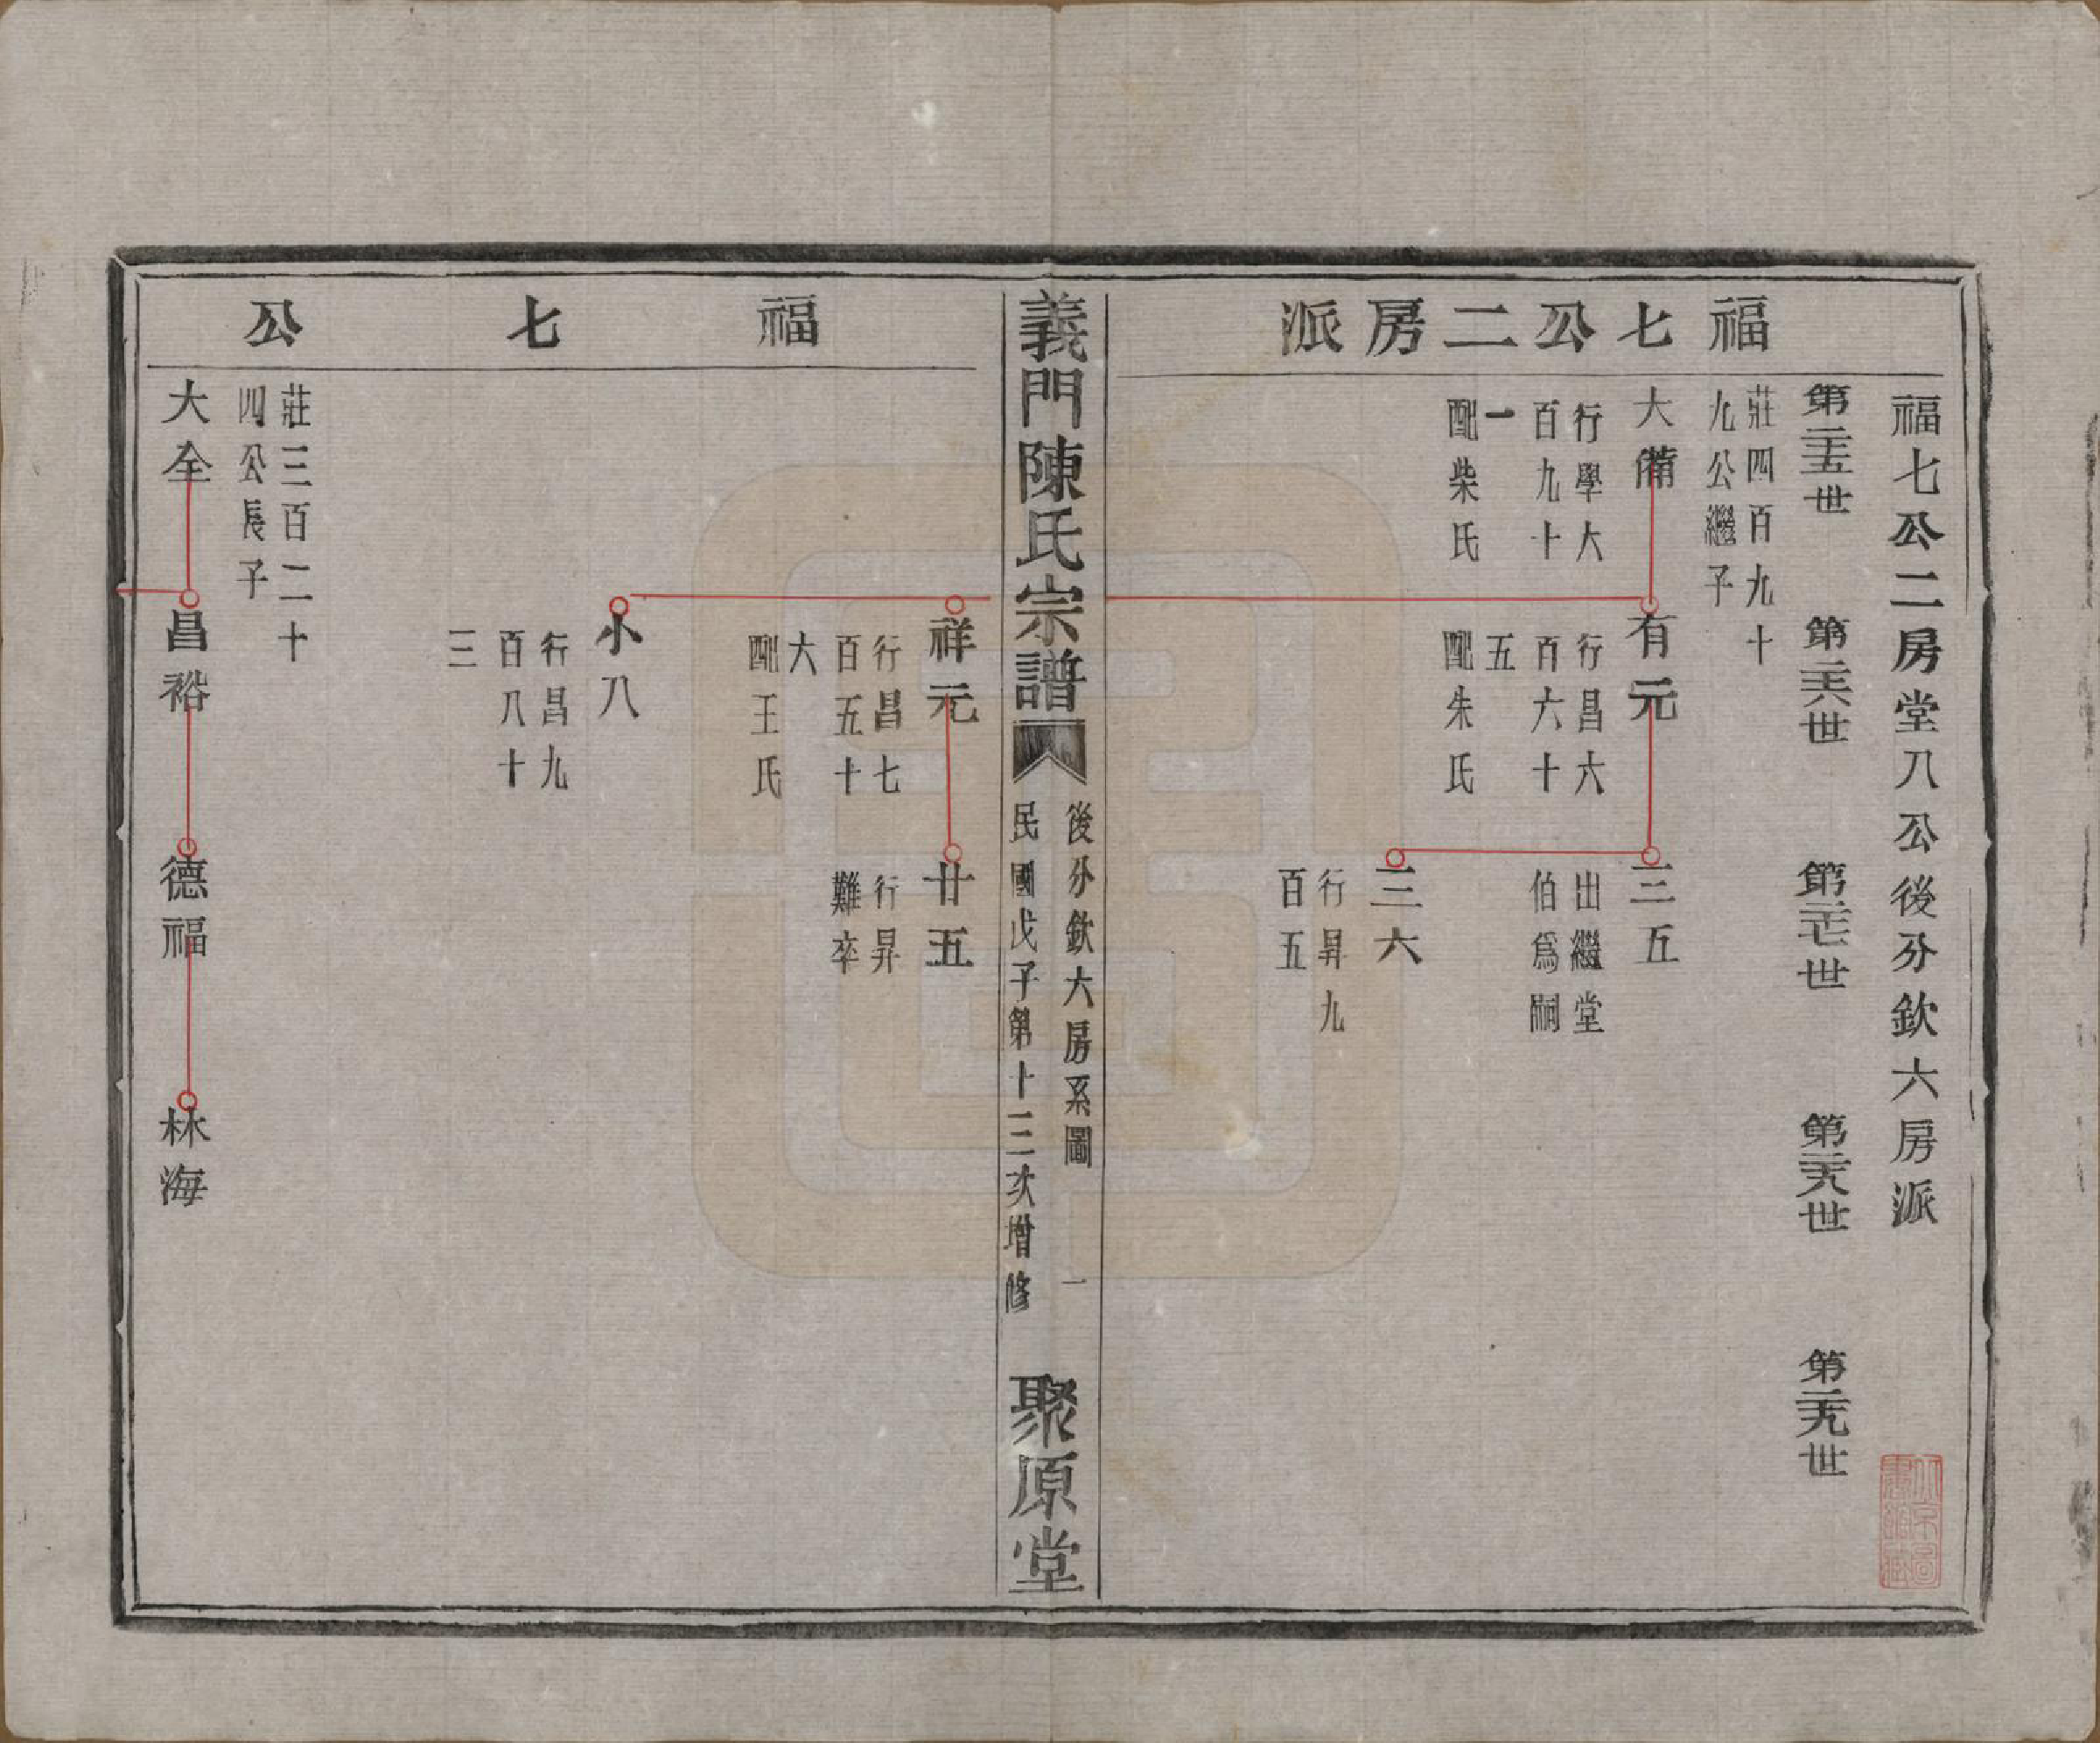 福七公二房派
福七公二房堂八公後分欽六房派
第二十五世
第二十六世
第二十七世
第二十八世
第二十九世
莊四百九十
九公繼子
大備
行學大
百九十
一
配柴氏
有元
行昌六
百六十
五
配朱氏
三五
出繼堂
伯爲嗣
三六
行昇九
百五
義門陳氏宗譜
後分欽大房系圖 一
民國戊子第十三次增修
聚原堂
福七公
祥元
行昌七
百五十
六
配王氏
廿五
行昇
難卒
小八
行昌九
百八十
三
莊三百二十
四公長子
大全
昌裕
德福
林海